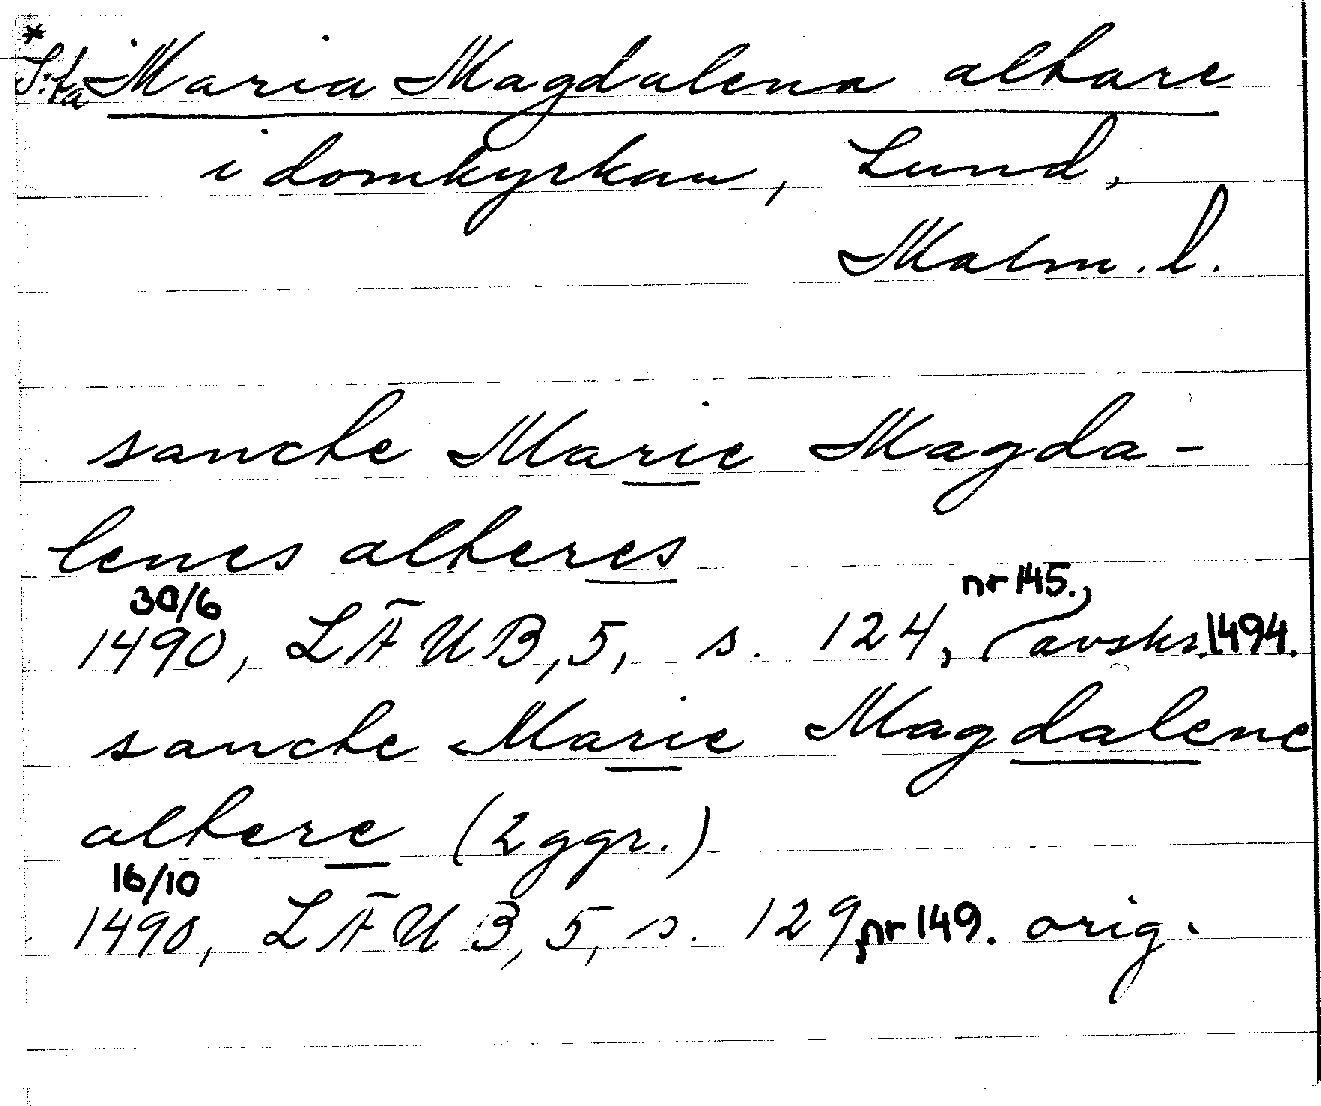 *
S:ta Maria Magdalena altare
i domkyrkan, Lund,
Malm. l.
sancte Marie Magda-
lenes alteres
30/6 nr 145.,
1490, LÄUB, 5, s. 124, (avskr. 1494.
sancte Marie Magdalene
altere (2 ggr.)
16/10
1490, LÄUB, 5, s. 129, nr 149. orig.